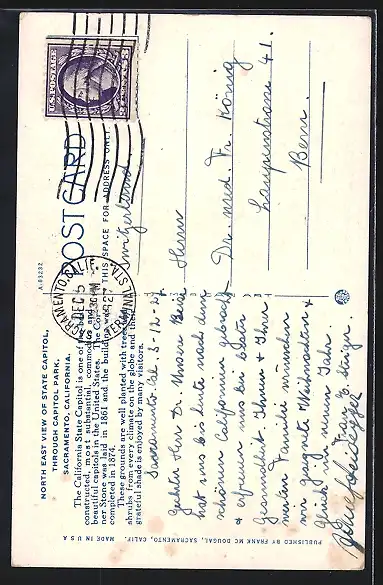 NORTH EAST VIEW OF STATE CAPITOL,
THROUGH CAPITOL PARK,
SACRAMENTO, CALIFORNIA.
The California State Capitol is one of the best
constructed, most substantial, commodious and
beautiful capitols in the United States. The Cor-
ner Stone was laid in 1861 and the building was
completed in 1874.
These grounds are well planted with trees and
shrubs from every climate on the globe and their
grateful shade is enjoyed by many visitors.
A-85282
POST CARD
THIS SPACE FOR ADDRESS ONLY.
U.S. POSTAGE
3 CENTS 3
SACRAMENTO, CALIF.
DEC 5
30 PM
TERMINAL STA.
Sacramento Cal. 5-12-27.
Geehrter Herr Dr. Unsere Reise
hat uns bis heute nach dem
schönen Californien gebracht
& erfreuen uns bester
Gesundheit. Ihnen & Ihrer
werten Familie wünschen
wir gesegnete Weihnachten &
Glück im neuen Jahr.
Herrn
Dr. med. Fr. König
Laupenstrasse 41.
Bern.
Switzerland
PUBLISHED BY FRANK MC DOUGAL, SACRAMENTO, CALIF.
MADE IN U S A